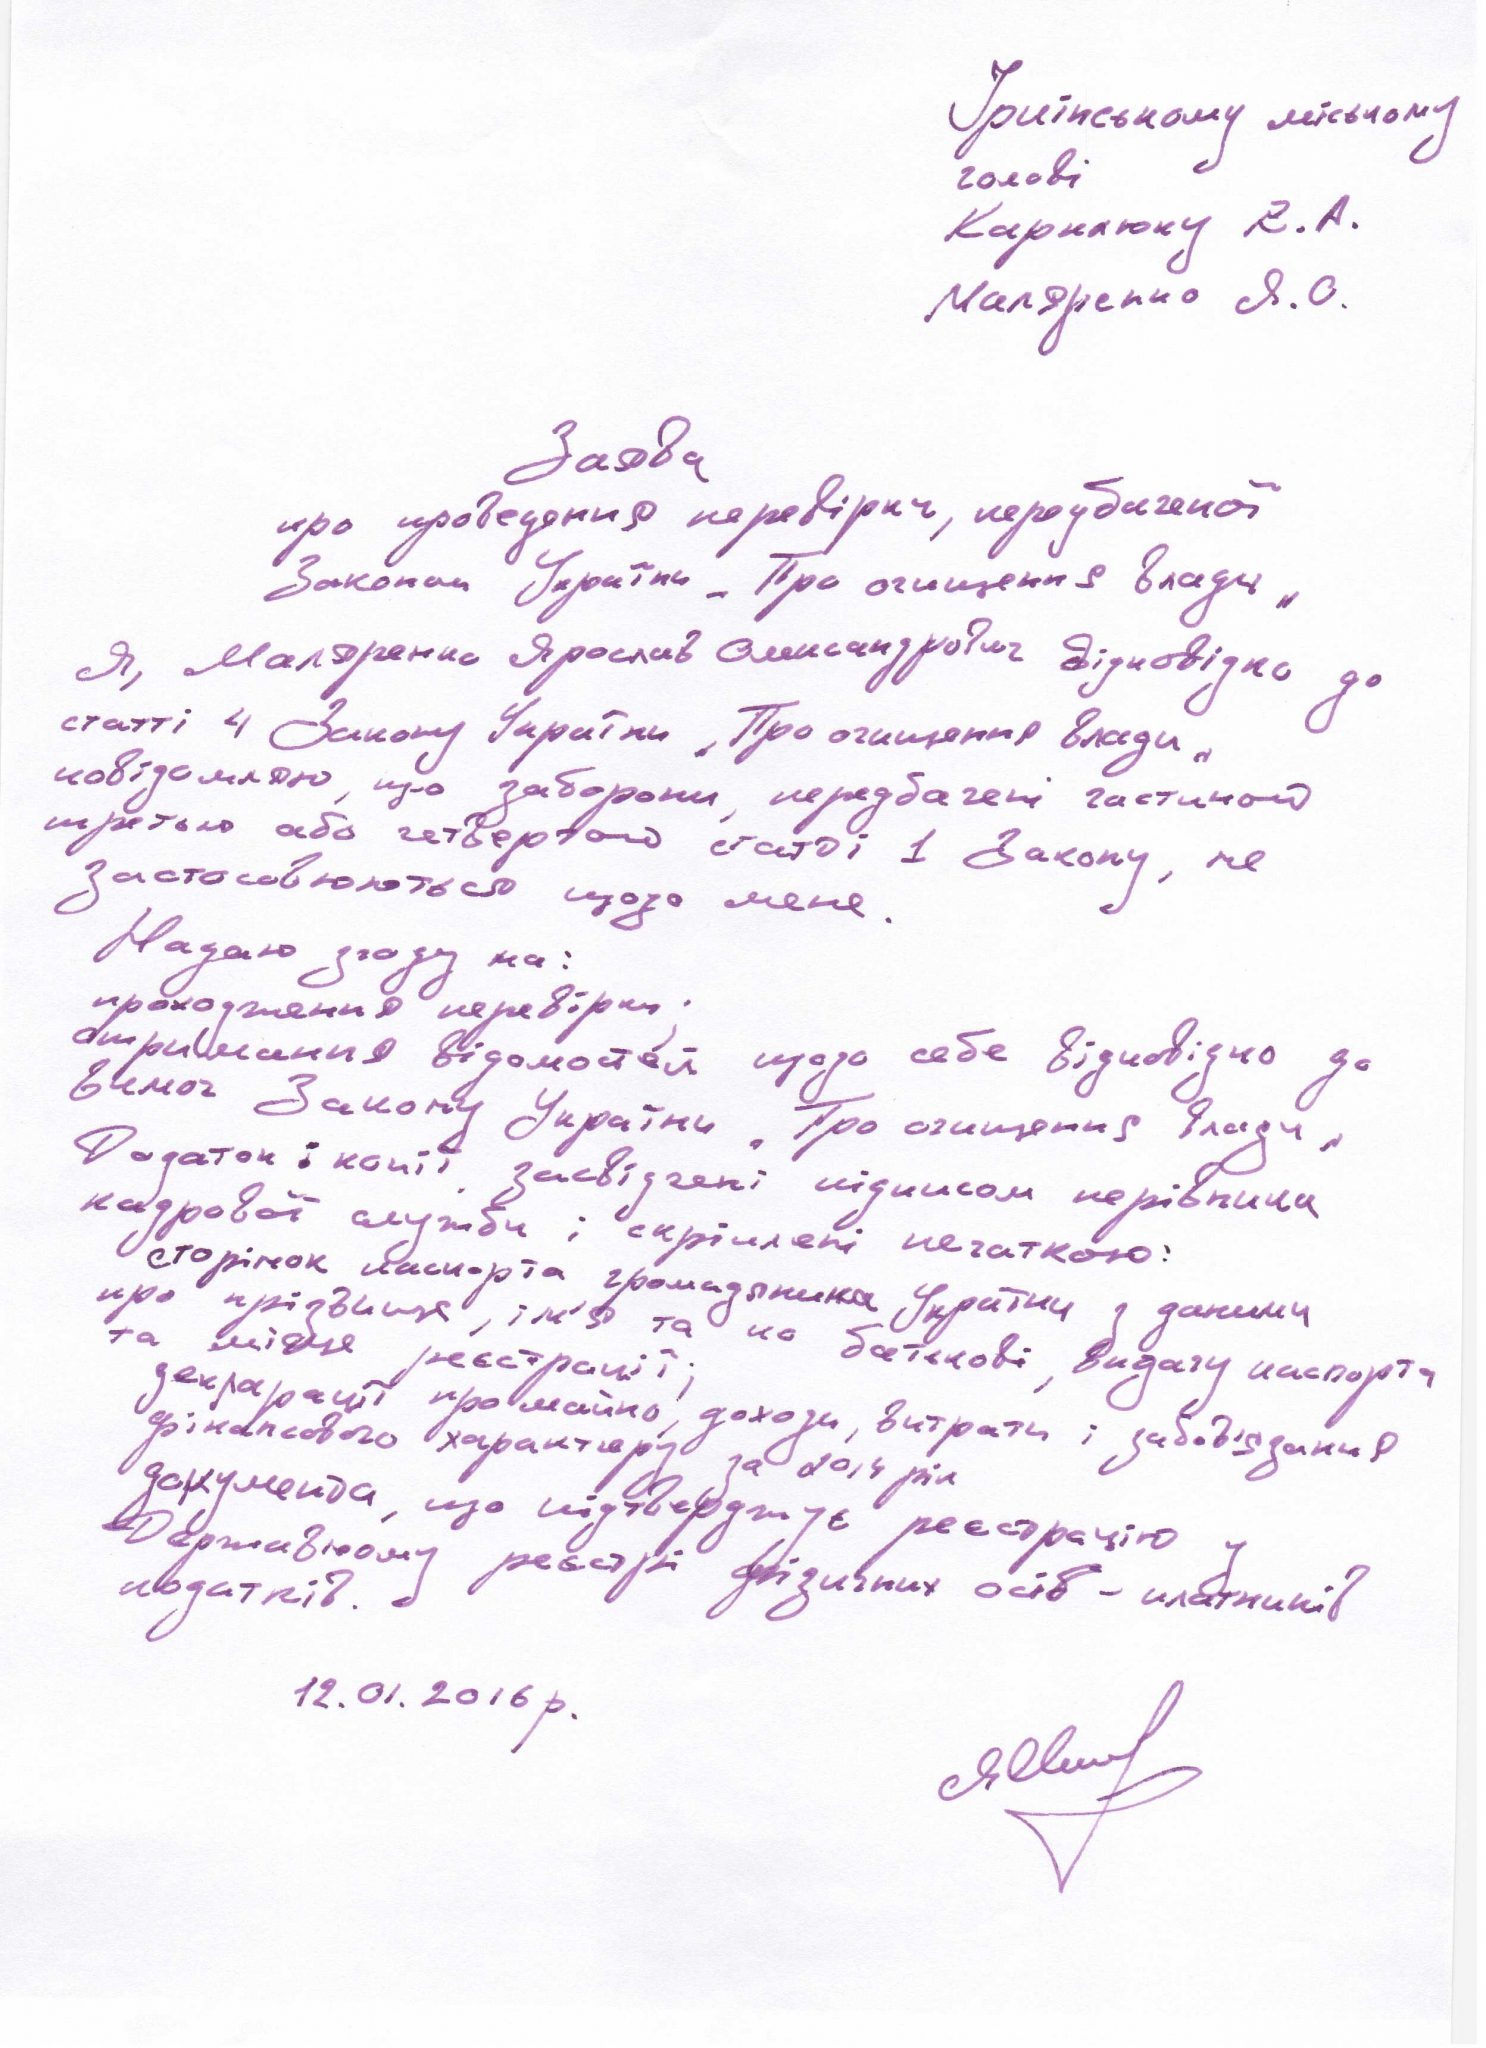 Ірпінському міському
голові
Карплюку В. А.
Маляренко Я. О.
Заява
про проведення перевірки, передбаченої
Законом України „Про очищення влади"
Я, Маляренко Ярослав Олександрович відповідно до
статті 4 Закону України „Про очищення влади"
повідомляю, що заборони, передбачені частиною
третьою або четвертою статті 1 Закону, не
застосовюються щодо мене.
Надаю згоду на:
проходження перевірки;
отримання відомостей щодо себе відповідно до
вимог Закону України „Про очищення влади"
Додаток: копії, засвідчені підписом керівника
кадрової служби і скріплені печаткою:
сторінок паспорта громадянина України з даними
про прізвище, ім'я та по батькові, видачу паспорта
та місце реєстрації;
декларації про майно, доходи, витрати і зобов'язання
фінансового характеру за 2014 рік
документа, що підтверджує реєстрацію у
Державному реєстрі фізичних осіб – платників
податків.
12.01.2016р.